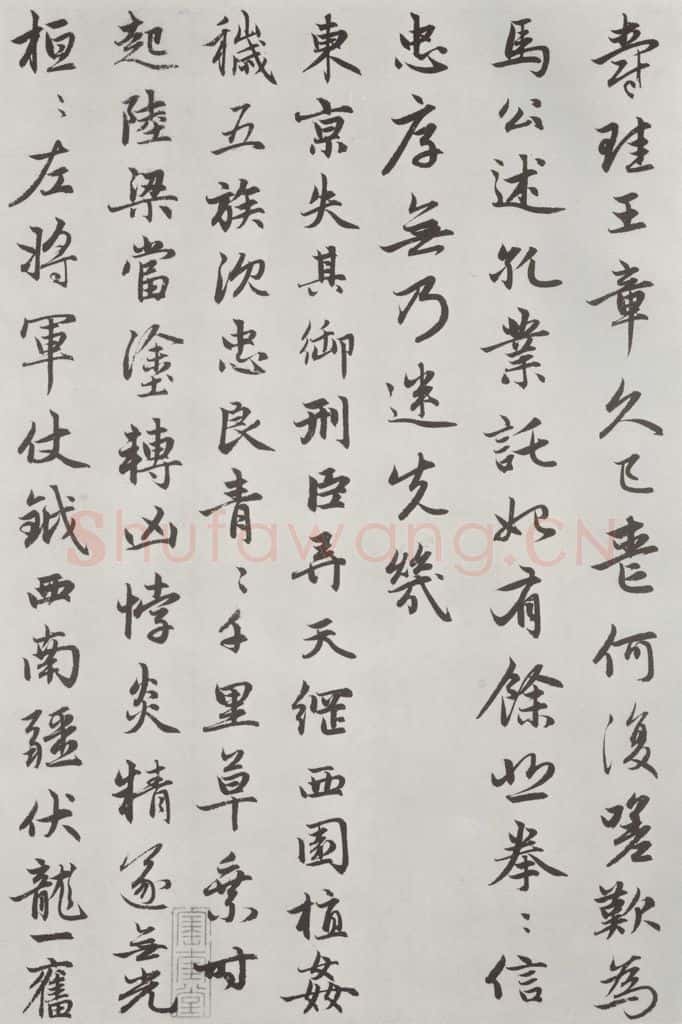 爵珪王章久已喪何復嗟歎為
馬公述孔業託始有餘悲拳〻信
忠厚無乃迷先幾
東京失其御刑臣弄天綱西園植姦
穢五族沉忠良青〻千里草乘時
起陸梁當塗轉凶悖炎精遂無光
桓〻左將軍仗鉞西南疆伏龍一奮
Shufawang.CN